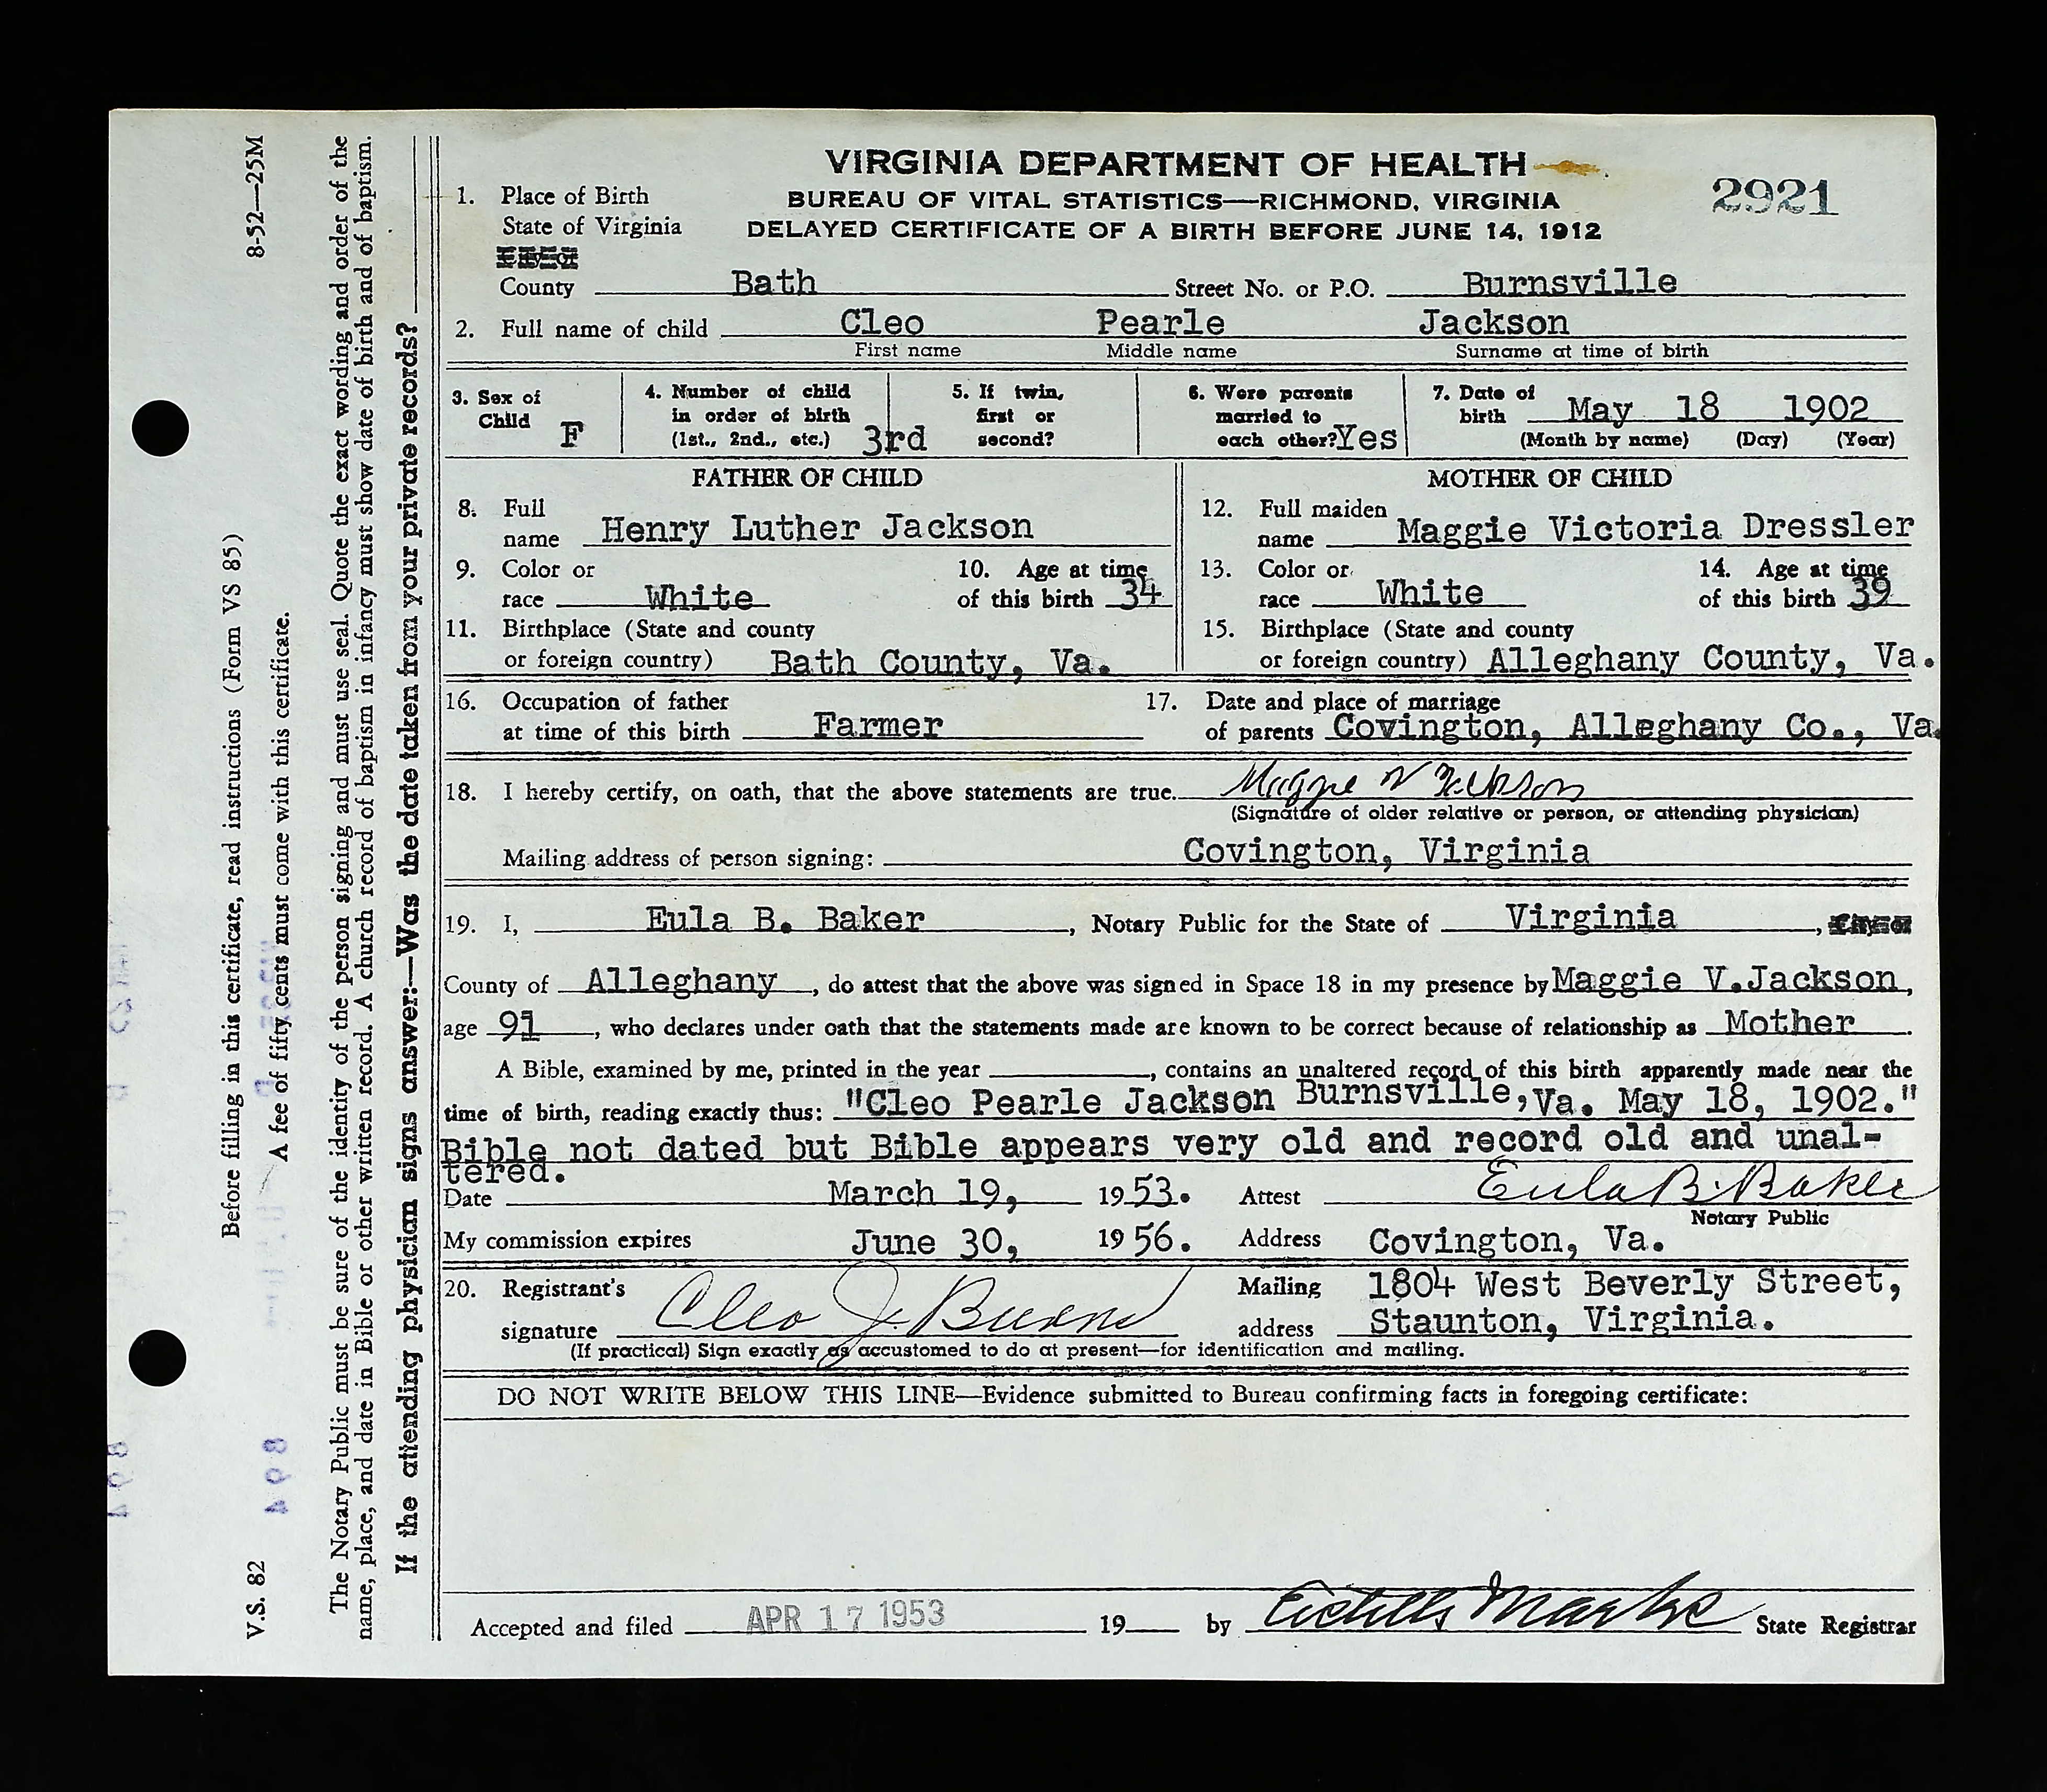 VIRGINIA DEPARTMENT OF HEALTH
BUREAU OF VITAL STATISTICS—RICHMOND, VIRGINIA
DELAYED CERTIFICATE OF A BIRTH BEFORE JUNE 14, 1912
2921
1. Place of Birth
State of Virginia
County Bath Street No. or P.O. Burnsville
2. Full name of child Cleo Pearle Jackson
First name Middle name Surname at time of birth
3. Sex of Child F
4. Number of child in order of birth (1st., 2nd., etc.) 3rd
5. If twin, first or second?
6. Were parents married to each other? Yes
7. Date of birth May 18 1902
(Month by name) (Day) (Year)
FATHER OF CHILD
8. Full name Henry Luther Jackson
9. Color or race White
10. Age at time of this birth 34
11. Birthplace (State and county or foreign country) Bath County, Va.
MOTHER OF CHILD
12. Full maiden name Maggie Victoria Dressler
13. Color or race White
14. Age at time of this birth 39
15. Birthplace (State and county or foreign country) Alleghany County, Va.
16. Occupation of father at time of this birth Farmer
17. Date and place of marriage of parents Covington, Alleghany Co., Va.
18. I hereby certify, on oath, that the above statements are true. Maggie V Jackson
(Signature of older relative or person, or attending physician)
Mailing address of person signing: Covington, Virginia
19. I, Eula B. Baker, Notary Public for the State of Virginia,
County of Alleghany, do attest that the above was signed in Space 18 in my presence by Maggie V.Jackson,
age 91, who declares under oath that the statements made are known to be correct because of relationship as Mother.
A Bible, examined by me, printed in the year , contains an unaltered record of this birth apparently made near the
time of birth, reading exactly thus: "Cleo Pearle Jackson Burnsville, Va. May 18, 1902."
Bible not dated but Bible appears very old and record old and unal-
tered.
Date March 19, 1953. Attest Eula B. Baker
Notary Public
My commission expires June 30, 1956. Address Covington, Va.
20. Registrant's signature Cleo J. Burns
Mailing address 1804 West Beverly Street,
Staunton, Virginia.
(If practical) Sign exactly as accustomed to do at present—for identification and mailing.
DO NOT WRITE BELOW THIS LINE—Evidence submitted to Bureau confirming facts in foregoing certificate:
Accepted and filed APR 17 1953 19 by Estelle Marks State Registrar
V.S. 82
8-52—25M
Before filling in this certificate, read instructions (Form VS 85)
A fee of fifty cents must come with this certificate.
The Notary Public must be sure of the identity of the person signing and must use seal. Quote the exact wording and order of the
name, place, and date in Bible or other written record. A church record of baptism in infancy must show date of birth and of baptism.
If the attending physician signs answer:—Was the date taken from your private records?